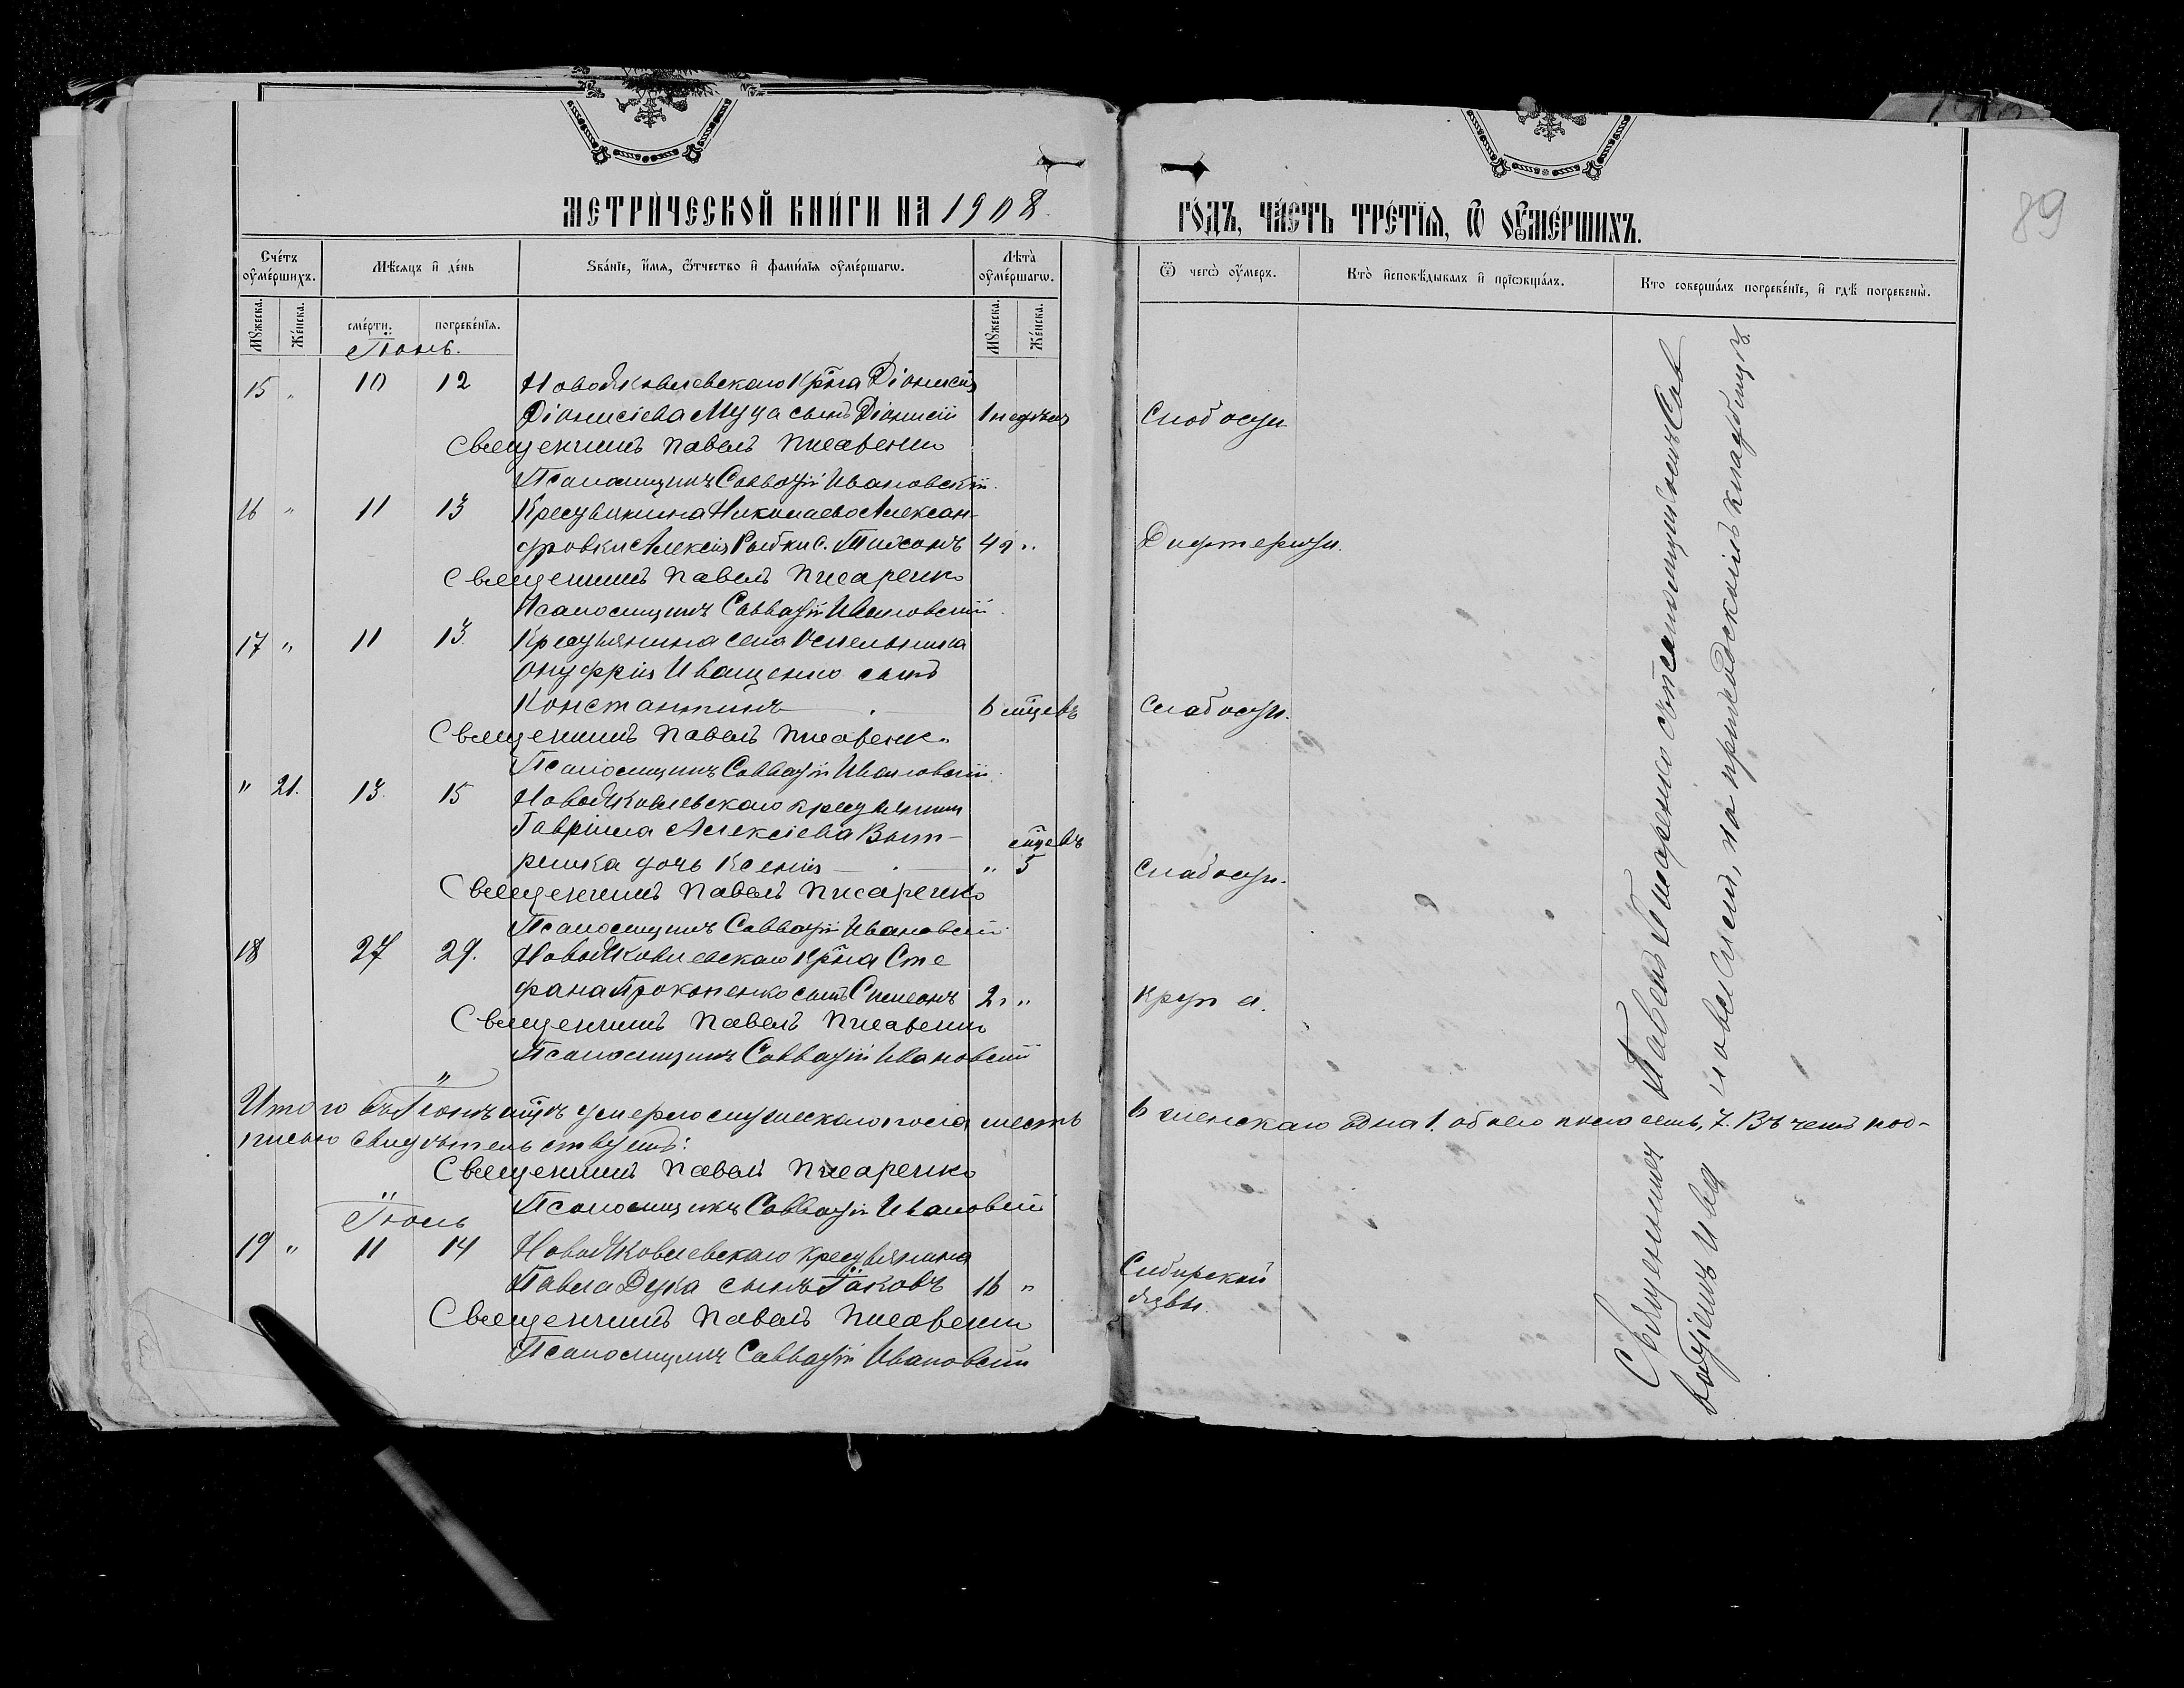 МЕТРИЧЕСКОЙ КНИГИ НА 1908
ГОДЪ, ЧАСТЬ ТРЕТІЯ, Ѿ ОУМЕРШИХЪ.
89
Счетъ оумершихъ.
Мѣсяцъ и день
Званіе, имя, отчество и фамилія оумершагѡ.
Лѣта оумершагѡ.
Ѿ чегѡ оумеръ.
Кто исповѣдывалъ и пріѡбщалъ.
Кто совершалъ погребеніе, и гдѣ погребены.
Мужеска. Женска. смерти. погребенія. Мужеска. Женска.
Іюнь.
15 " 10 12 Новояковлевскаго Кр̃на Діонисія
Діонисіева Муца сынъ Діонисій 1 недѣля Слабости
Священникъ Павелъ Писаренко
Псаломщикъ Савватій Ивановскій.
16 " 11 13 Крестьянина Николаево Алексан-
дровки Алексія Рыбки с. 4 г " Дифтерити.
Священникъ Павелъ Писаренко
Псаломщикъ Савватій Ивановскій.
17 " 11 13 Крестьянина села
Онуфрія Иващенко сынъ
Константинъ 6 мцевъ Слабости.
Священникъ Павелъ Писаренко
Псаломщикъ Савватій Ивановскій.
" 21. 13. 15 Новояковлевскаго крестьянина
Гавріила Алексіева Выт-
мцевъ
ришка дочь Ксенія " 5 Слабости.
Священникъ Павелъ Писаренко
Псаломщикъ Савватій Ивановскій
18 27 29. Новояковлевскаго Кр̃на Сте
фана Прокопенко сынъ Симеонъ 2 г " Крупа.
Священникъ Павелъ Писаренко
Псаломщикъ Савватій Ивановскій
Итого въ Іюнѣ мцѣ умерло мужескаго пола шесть 6 женскаго одна 1. обоего пола семь, 7. Въ чемъ под-
писью свидѣтельствуемъ:
Священникъ Павелъ Писаренко
Псаломщикъ Савватій Ивановскій
Іюль
19 " 11 14 Новояковлевскаго крестьянина
Павла Дука сынъ Іаковъ 16 " Сибирской
язвы.
Священникъ Павелъ Писаренко
Псаломщикъ Савватій Ивановскій
Священникъ Павелъ Писаренко съ псаломщикомъ Сав
ватіемъ Ивановскимъ, на приходскомъ кладбищѣ